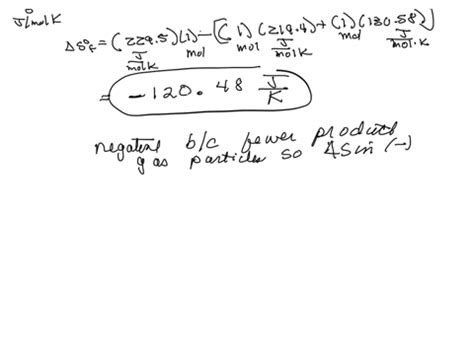 J/molK
ΔS°f = (229.5)(1) - [(1)(219.4) + (1)(130.58)]
J/molK mol mol J/molK mol J/mol·K
= -120.48 J/K
negative b/c fewer product
gas particles so ΔS in (-)